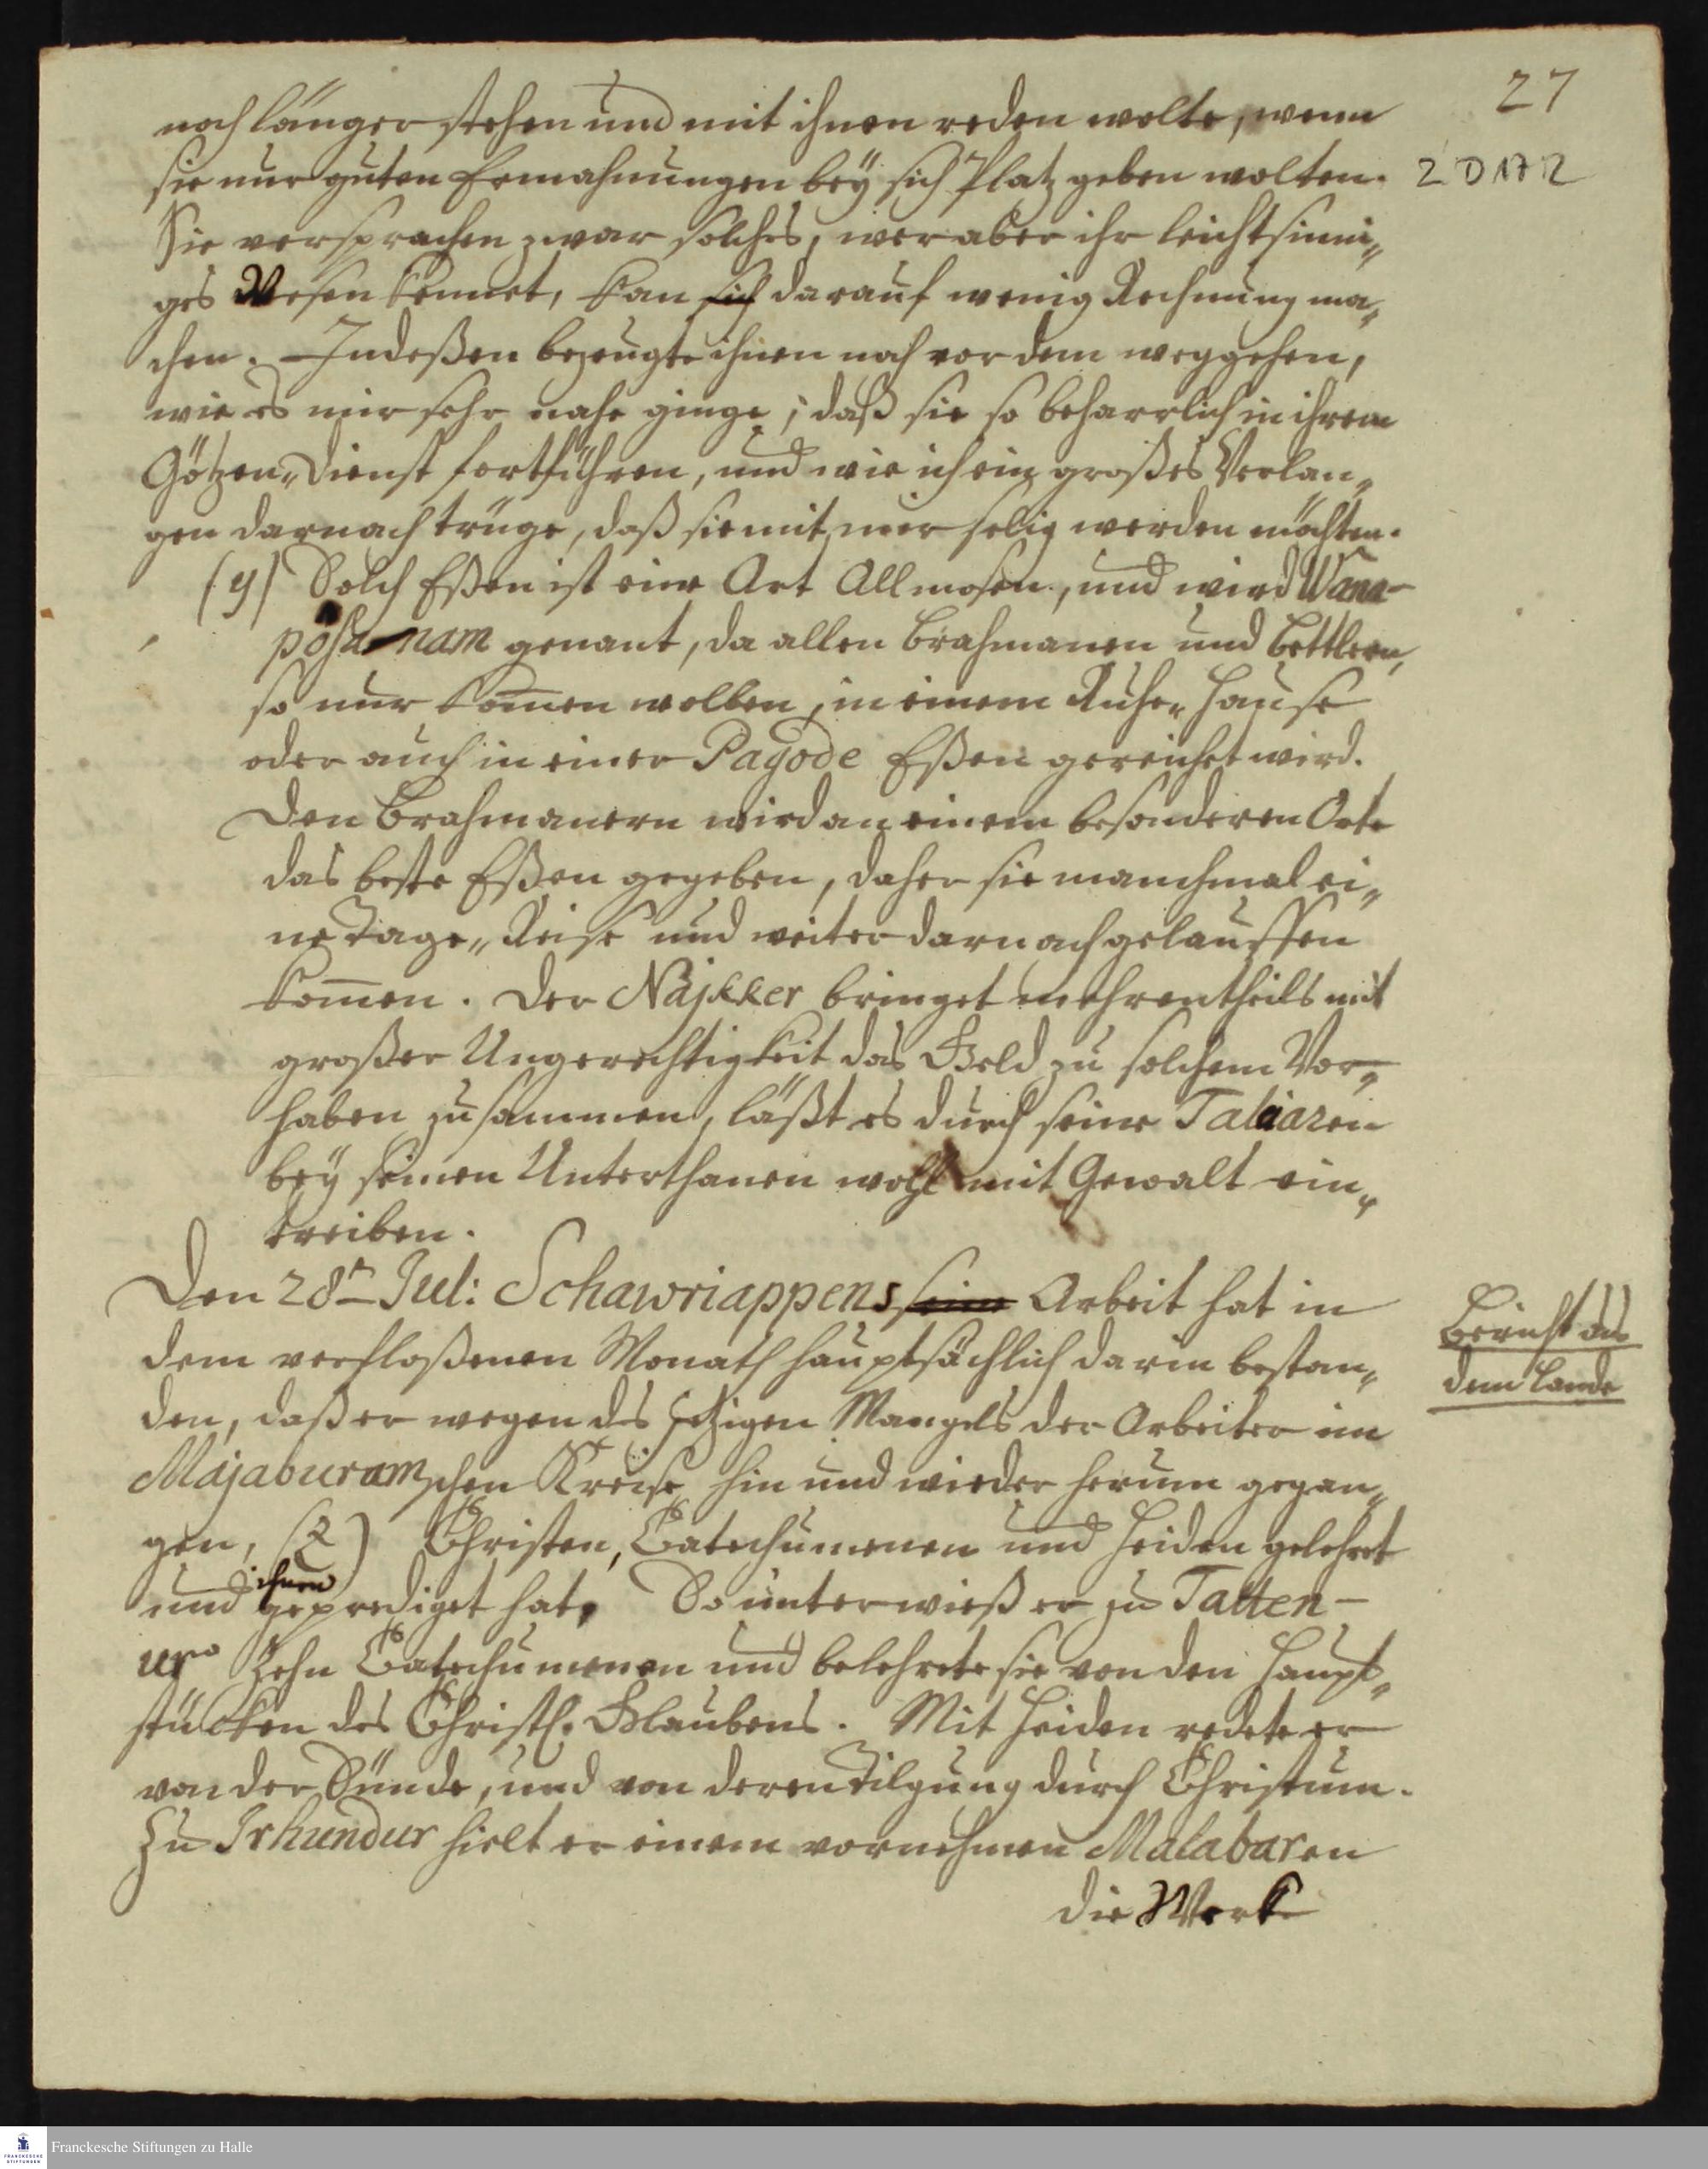 27
noch länger stehen und mit ihnen reden wolte, wenn
sie nur guten Ermahnungen beÿ sich Platz geben wolten.
2 D 17 R
Sie versprachen zwar solches, wer aber ihr leichtsinni„
ges Wesen kennet, kan sich darauf wenig Rechnung ma„
chen. Indeßen bezeugte ihnen noch vor dem weggehen,
wie es mir sehr nahe ginge, daß sie so beharrlich in ihrem
Götzen„Dienst fortführen, und wie ich ein großes Verlan„
gen darnach trüge, daß sie mit mir selig werden möchten.
(y) Solch Eßen ist eine Art Allmosen, und wird Wana-
pöschanam genant, da allen Brahmanen und Bettlern,
so nur kom̅en wollen, in einem Ruhe„Hause
oder auch in einer Pagode Eßen gereichet wird.
Den Brahmanern wird an einem besonderen Orte
das beste Eßen gegeben, daher sie manchmal ei„
ne Tage„Reise und weiter darnach gelauffen
kom̅en. Der Näjkker bringet mehrentheils mit
großer Ungerechtigkeit das Geld zu solchem Vor„
haben zusammen, läßt es durch seine Taliaren
beÿ seinen Unterthanen wohl mit Gewalt ein„
treiben.
Den 28n Jul: Schawriappens seine Arbeit hat in
Bericht aus
dem Lande
dem verfloßenen Monath hauptsächlich darin bestan„
den, daß er wegen des jetzigen Mangels der Arbeiter im
Majaburamschen Kreise hin und wieder herum gegan„
gen, (z) Christen, Catechumenen und Heiden gelehret
und ihnen geprediget hat. So unterwieß er zu Tatten-
ur Zehn Catechumenen und belehrete sie von den Haupt„
stücken des Christl. Glaubens. Mit Heiden redete er
von der Sünde, und von deren Tilgung durch Christum.
Zu Irhundur hielt er einem vornehmen Malabaren
die Werke
Franckesche Stiftungen zu Halle